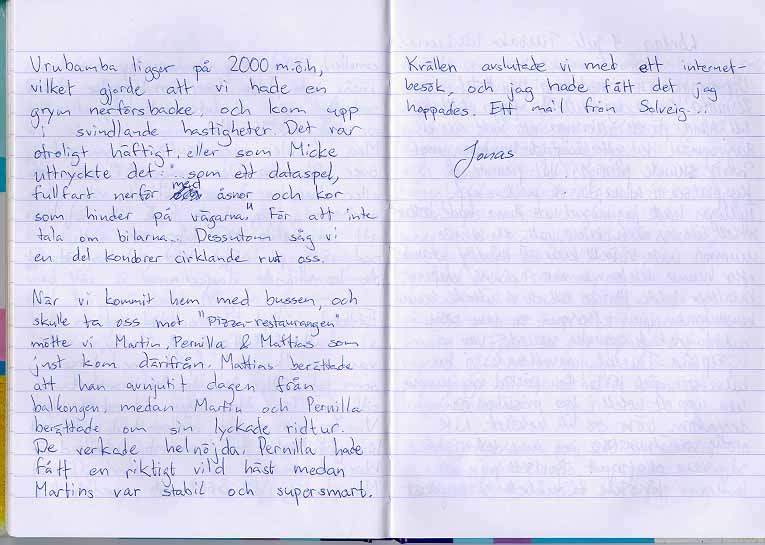 Urubamba ligger på 2000 m.ö.h,
vilket gjorde att vi hade en
grym nerförsbacke, och kom upp
i svindlande hastigheter. Det var
otroligt häftigt, eller som Micke
uttryckte det: "...som ett dataspel,
fullfart nerför med åsnor och kor
som hinder på vägarna". För att inte
tala om bilarna... Dessutom såg vi
en del kondorer cirklande runt oss.
När vi kommit hem med bussen, och
skulle ta oss mot "Pizza-restaurangen"
mötte vi Martin, Pernilla & Mattias som
just kom därifrån. Mattias berättade
att han avnjutit dagen från
balkongen, medan Martin och Pernilla
berättade om sin lyckade ridtur.
De verkade helnöjda. Pernilla hade
fått en riktigt vild häst medan
Martins var stabil och supersmart.
Kvällen avslutade vi med ett internet-
besök, och jag hade fått det jag
hoppades. Ett mail från Solveig...
Jonas